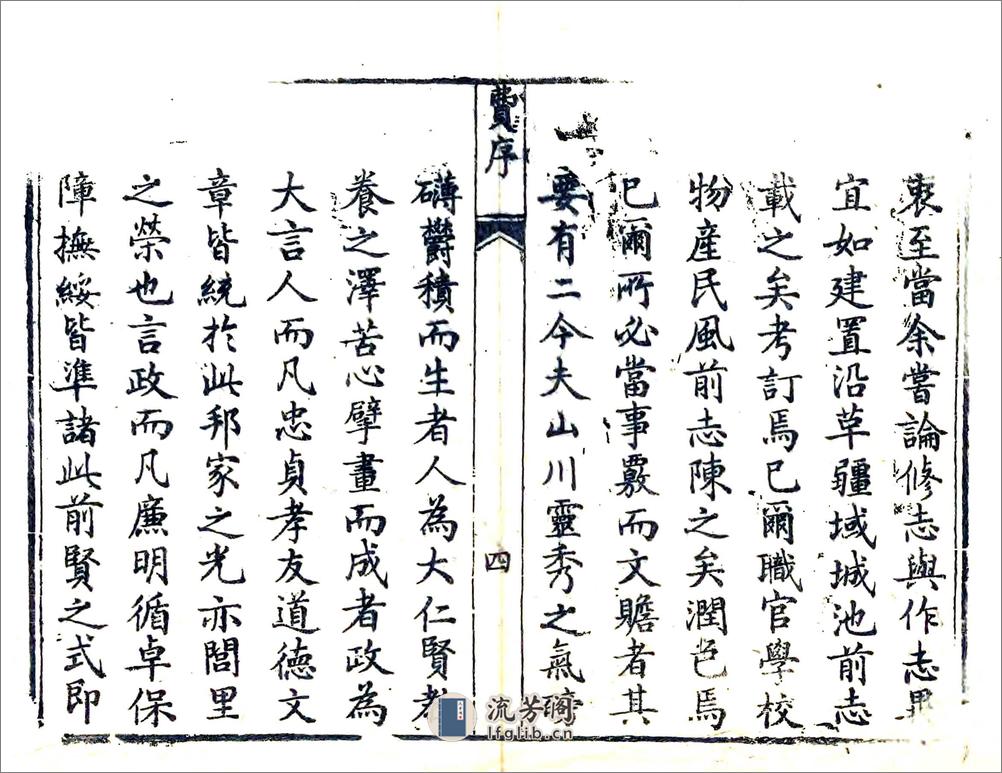 衷至當余嘗論修志與作志異
宜如建置沿革疆域城池前志
載之矣考訂焉已爾職官學校
物產民風前志陳之矣潤色焉
已爾所必當事覈而文贍者其
要有二今夫山川靈秀之氣
費序
四
礴欝積而生者人為大仁賢教
養之澤苦心擘畫而成者政為
大言人而凡忠貞孝友道德文
章皆統於此邦家之光亦閭里
之榮也言政而凡廉明循卓保
障撫綏皆準諸此前賢之式即
流芳阁
lfglib.cn